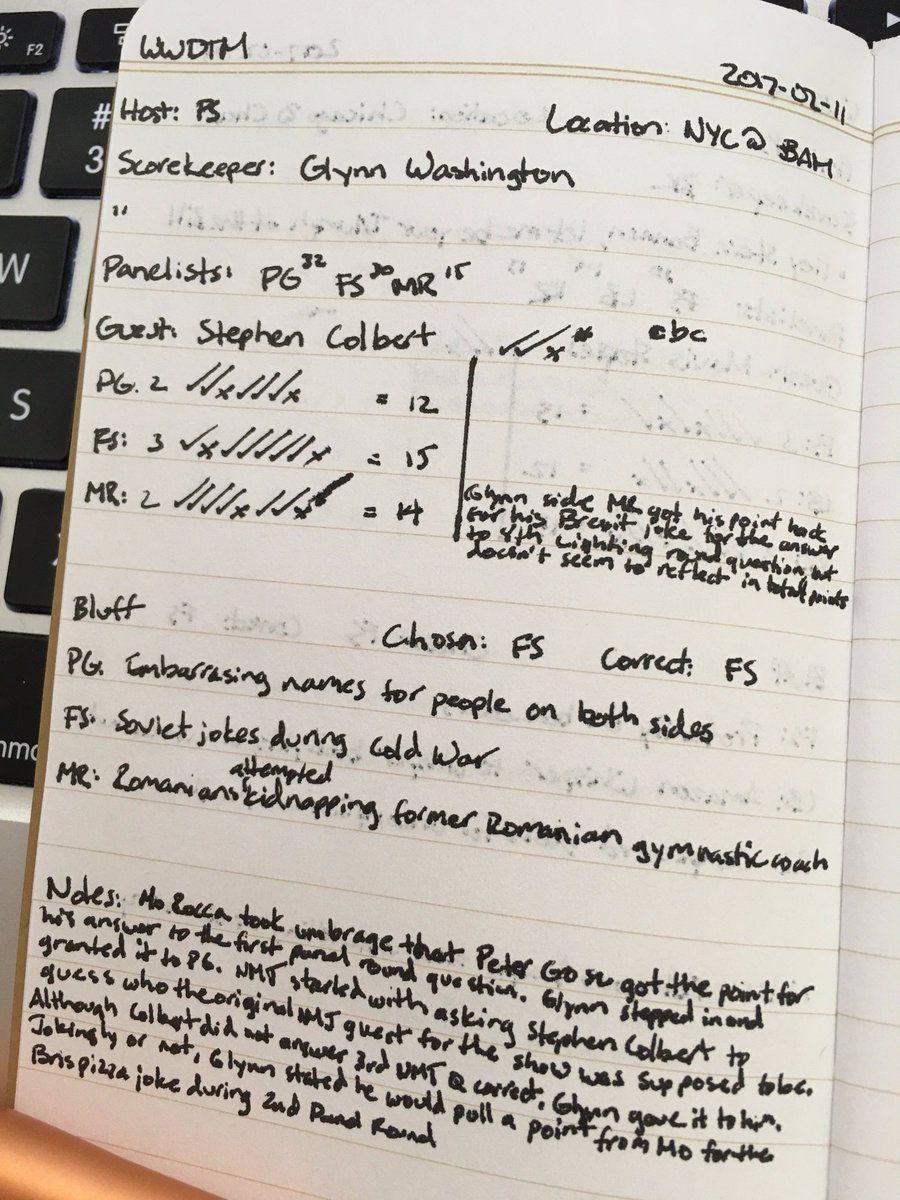 WWDTM
2017-02-11
Host: PS
Location: NYC @ BAM
Scorekeeper: Glynn Washington
"
Panelists: PG 32 FS 30 MR 15
Guest: Stephen Colbert ✓✓x* abc
PG. 2 ✓✓x✓✓✓x = 12
FS: 3 ✓x✓✓✓✓✓x = 15
MR: 2 ✓✓✓✓x✓✓x✓ = 14
Glynn side MR got his point back
for his Brexit joke for the answer
to 8th Lighting round question, but
doesn't seem to reflect in total points
Bluff
Chosn: FS Correct: FS
PG. Embarrasing names for people on both sides
FS. Soviet jokes during Cold War
MR: Romanians attempted kidnapping former Romanian gymnastic coach
Notes: Mo Rocca took umbrage that Peter Gosu got the point for
his answer to the first panel round question. Glynn stepped in and
granted it to PG. NMJ started with asking Stephen Colbert to
guess who the original NMJ guest for the show was supposed to be.
Although Colbert did not answer 3rd NMJ Q correct, Glynn gave it to him.
Jokingly or not, Glynn stated he would pull a point from Mo for the
Bris pizza joke during 2nd Panel Round
# 3
F2
W
S